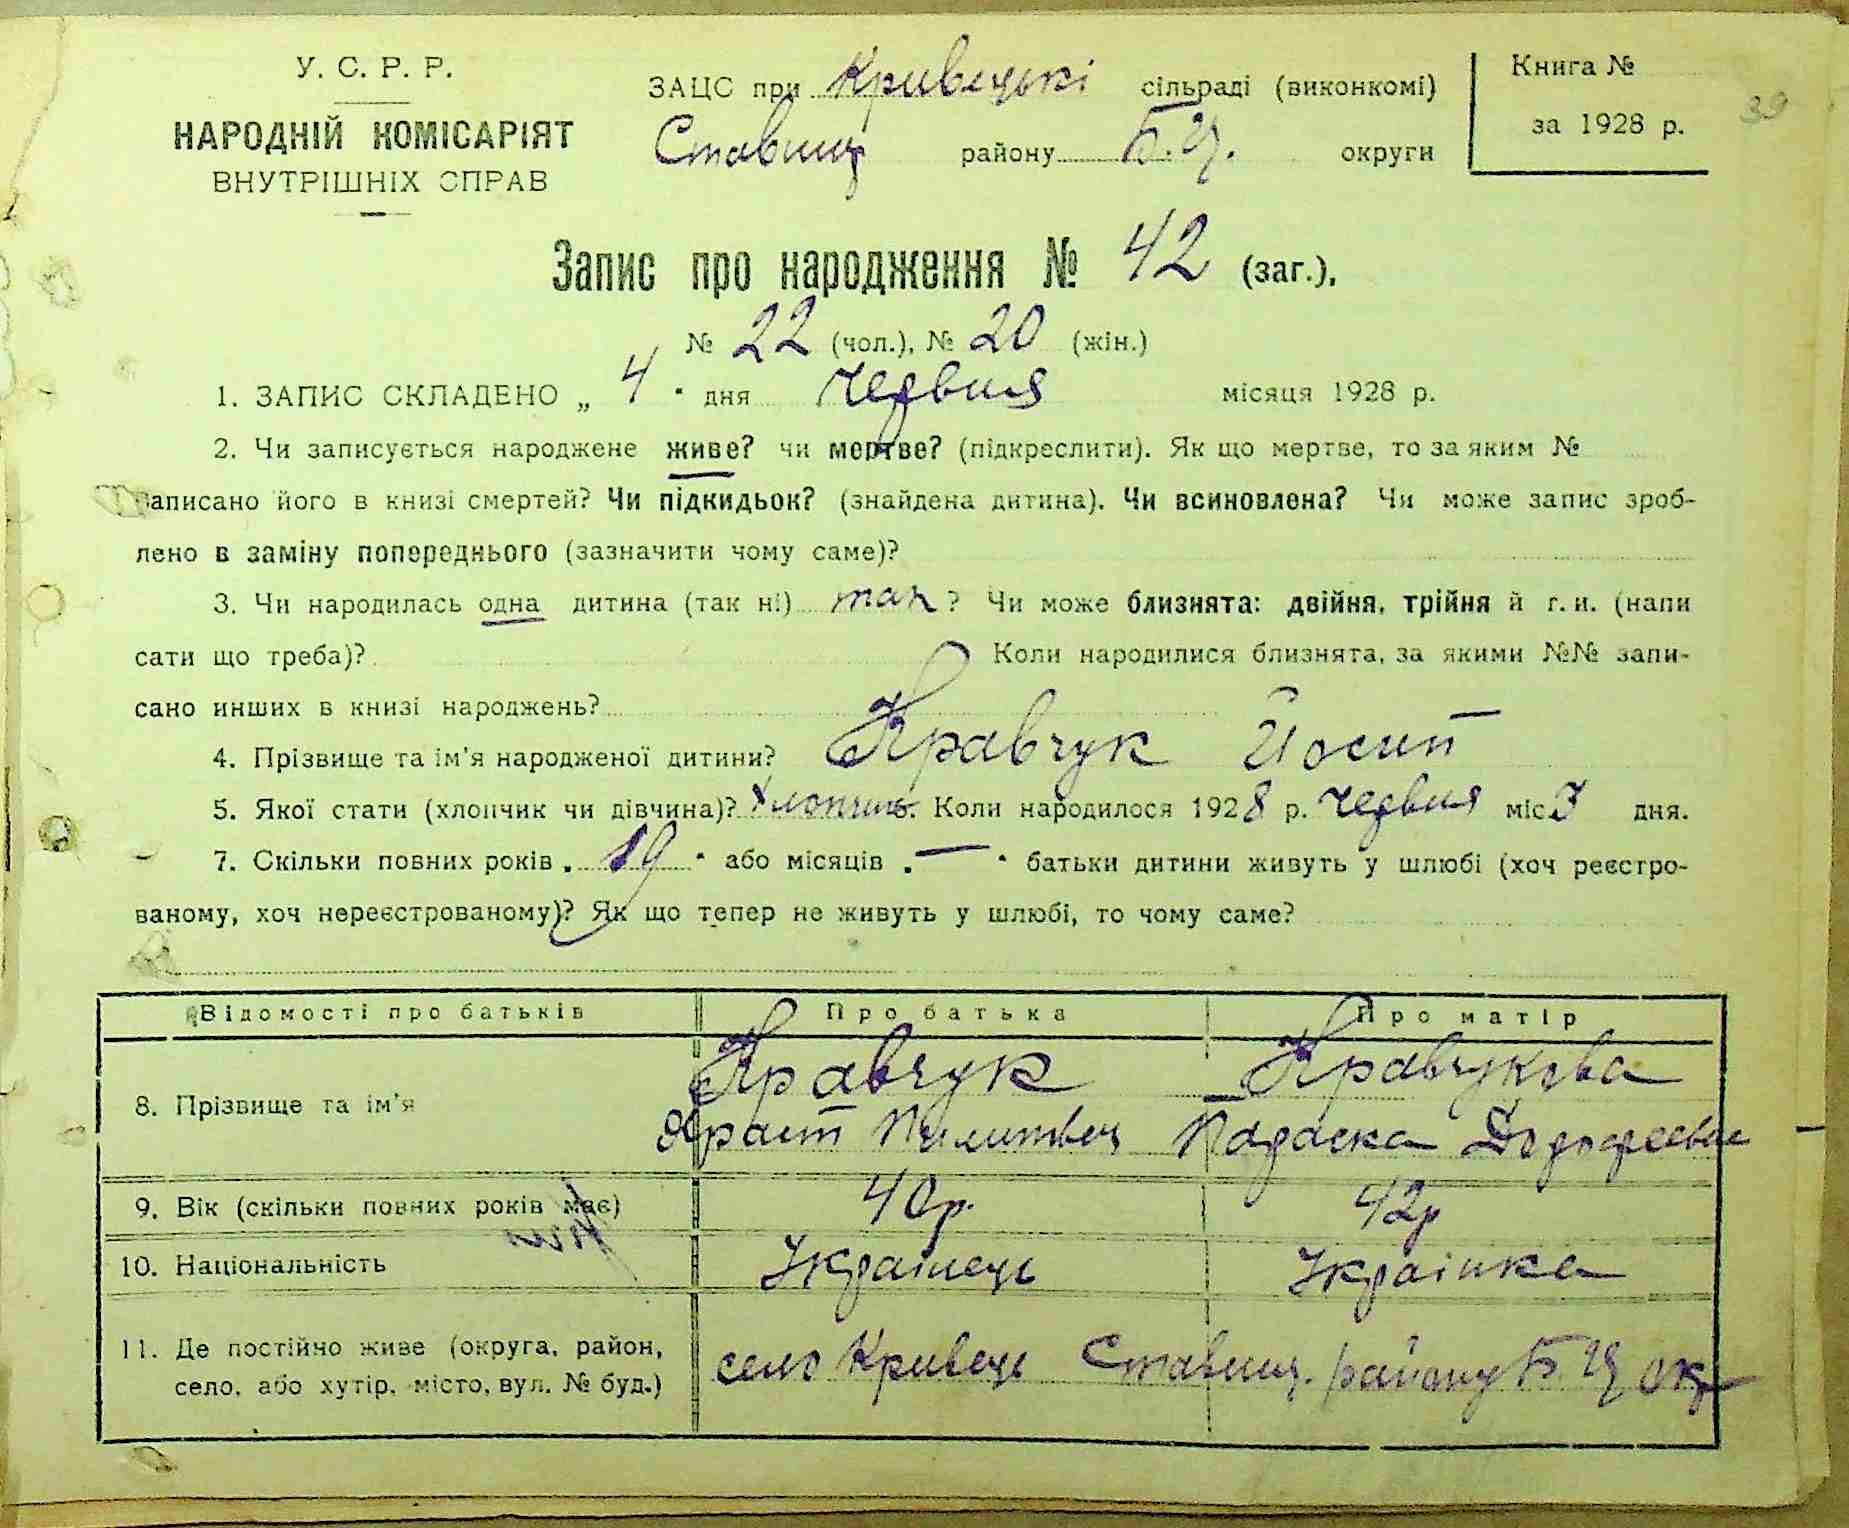 У. С. Р. Р.
НАРОДНІЙ КОМІСАРІЯТ
ВНУТРІШНІХ СПРАВ
ЗАЦС при Кривецькі сільраді (виконкомі)
Ставищ району Б. Ц. округи
Книга №
за 1928 р.
39
Запис про народження № 42 (заг.),
№ 22 (чол.), № 20 (жін.)
1. ЗАПИС СКЛАДЕНО „ 4 " дня червня місяця 1928 р.
2. Чи записується народжене живе? чи мертве? (підкреслити). Як що мертве, то за яким №
записано його в книзі смертей? Чи підкидьок? (знайдена дитина). Чи всиновлена? Чи може запис зроб-
лено в заміну попереднього (зазначити чому саме)?
3. Чи народилась одна дитина (так ні) так ? Чи може близнята: двійня, трійня й г. и. (напи
сати що треба)? Коли народилися близнята, за якими №№ запи-
сано инших в книзі народжень?
4. Прізвище та ім'я народженої дитини? Кравчук Йосип
5. Якої стати (хлопчик чи дівчина)? хлопчик. Коли народилося 1928 р. червня міс. 3 дня.
7. Скільки повних років „ 19 " або місяців „ — " батьки дитини живуть у шлюбі (хоч реєстро-
ваному, хоч нереєстрованому)? Як що тепер не живуть у шлюбі, то чому саме?
Відомості про батьків Про батька Про матір
8. Прізвище та ім'я
Кравчук Кравчукова
Параска
9. Вік (скільки повних років має) 40р. 42р
10. Національність Українець Українка
11. Де постійно живе (округа, район,
село, або хутір, місто, вул. № буд.)
село Кривець Ставищ. району Б Ц окр